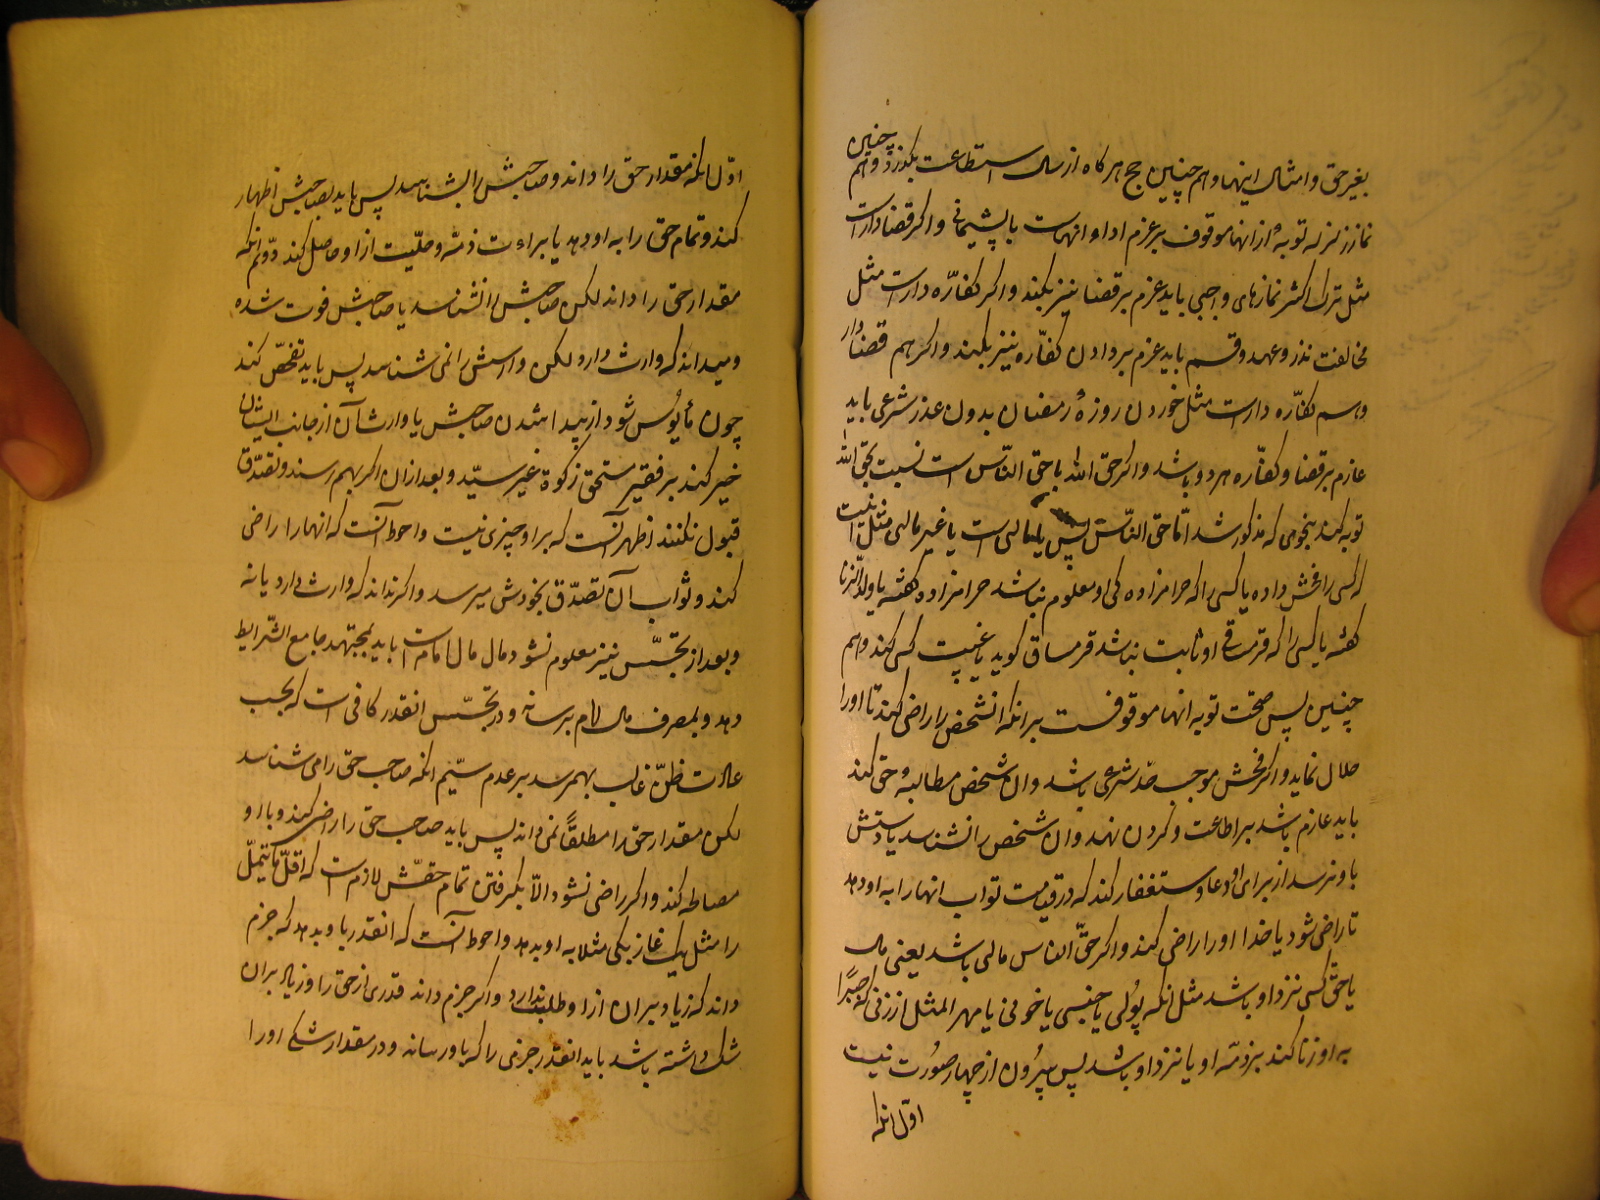 بغیر حق و امثال اینها و هم چنین حج هرگاه از سال استطاعت بگذرد و هم چنین
نماز زلزله توبهٔ از انها موقوف بر عزم ادا و انهاست با پشیمانی و اکر قضا دار است
مثل ترک اکثر نمازهای واجبی باید عزم بر قضا نیز بکند و اکر کفّاره دار است مثل
مخالفت نذر و عهد و قسم باید عزم بر دادن کفّاره نیز بکند و اکر هم قضا دار
و هم کفّاره دار است مثل خوردن روزهٔ رمضان بدون عذر شرعی باید
عازم بر قضا و کفّاره هر دو باشد و اکر حق الله با حق النّاس است نسبت بحق الله
توبه کند بنحوی که مذکور شد امّا حق النّاس پس یا مالی است یا غیر مالی مثل اینست
که کسی را فحش داده یا کسی را که حرامزاده کی او معلوم نباشد حرامزاده کفته یا ولد الزنا
کفته یا کسی را که قرمساقی او ثابت نباشد قرمساق کوید یا غیبت کسی کند و هم
چنین پس صحّت توبه انها موقوفست بر انکه انشخص را راضی کند تا او را
حلال نماید و اکر فحش موجب حدّ شرعی باشد و ان شخص مطالبه حق کند
باید عازم باشد بر اطاعت و کردن نهد و ان شخص را نشناسد یا دستش
باو نرسد از برای او دعا و ستغفار کند که در قیامت ثواب انها را به او دهد
تا راضی شود یا خدا او را راضی کند و اکر حقّ الناس مالی باشد یعنی مال
یا حق کسی نزد او باشد مثل انکه پولی یا جنسی یا خونی یا مهر المثل از زنی که جبرًا
به او زنا کند بر ذمّه او یا نزد او باشد پس بیرون از چهار صورت نیست
اوّل انکه
اوّل انکه مقدار حق را داند و صاحبش را بشناسد پس باید بصاحبش اظهار
کند و تمام حق را به او دهد یا براءت ذمّه و حلّیت از او حاصل کند دوّم انکه
مقدار حق را داند لکن صاحبش را نشناسد یا صاحبش فوت شده
و میداند که وارث دارد لکن وارسش را نمی شناسد پس باید تفحّص کند
چون مأیوس شود از پیدا شدن صاحبش یا وارثان آن از جانب ایشان
خیر کند بر فقیر مستحق زکوة غیر سیّد و بعد از ان اکر بهم رسند و تصدّق
قبول نکنند اظهر آنست که بر او چیزی نیست و احوط آنست که انها را راضی
کند و ثواب آن تصدّق بخودش میرسد و اکر نداند که وارث دارد یا نه
و بعد از تجسّس نیز معلوم نشود مال مال امام است باید بمجتهد جامع الشّرایط
دهد و بمصرف مال امام برساند و در تجسّس انقدر کافی است که بحسب
عادت ظنّ غالب بهمرسد بر عدم سیّم انکه صاحب حق را می شناسد
لکن مقدار حق را مطلقًا نمی داند پس باید صاحب حق را راضی کند و با او
مصالحه کند و اکر راضی نشود الّا بکرفتن تمام حقّش لازم است که اقلّ ما یتملّ
را مثل یک غاز بکی مثلا به او بدهد و احوط آنست که انقدر باو بدهد که جزم
داند که زیاد بر ان از او طلب ندارد و اکر جزم داند قدری از حق را و زیاد بر ان
شک داشته باشد باید انقدر جزمی را که باو رساند و در مقدار شکی او را